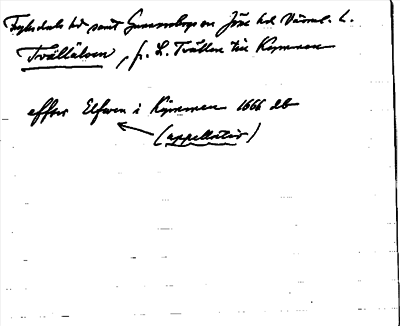 Fryksdals hd samt Gunnarskogs sn Jösse hd Värml. l.
Tvällälven, fr. L. Tvällen till Kymmen
effter Elfwen i Kymmen 1666 db
(appellativ)